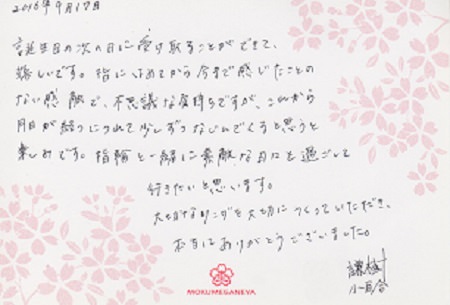 2016年9月17日
誕生日の次の日に受け取ることができて、
嬉しいです。指にはめてから今まで感じたことの
ない感触で、不思議な気持ちですが、これから
月日が経つにつれて少しずつなじんでくると思うと
楽しみです。指輪と一緒に素敵な日々を過ごして
行きたいと思います。
大切なリングを大切につくっていただき、
本当にありがとうございました。
MOKUMEGANEYA